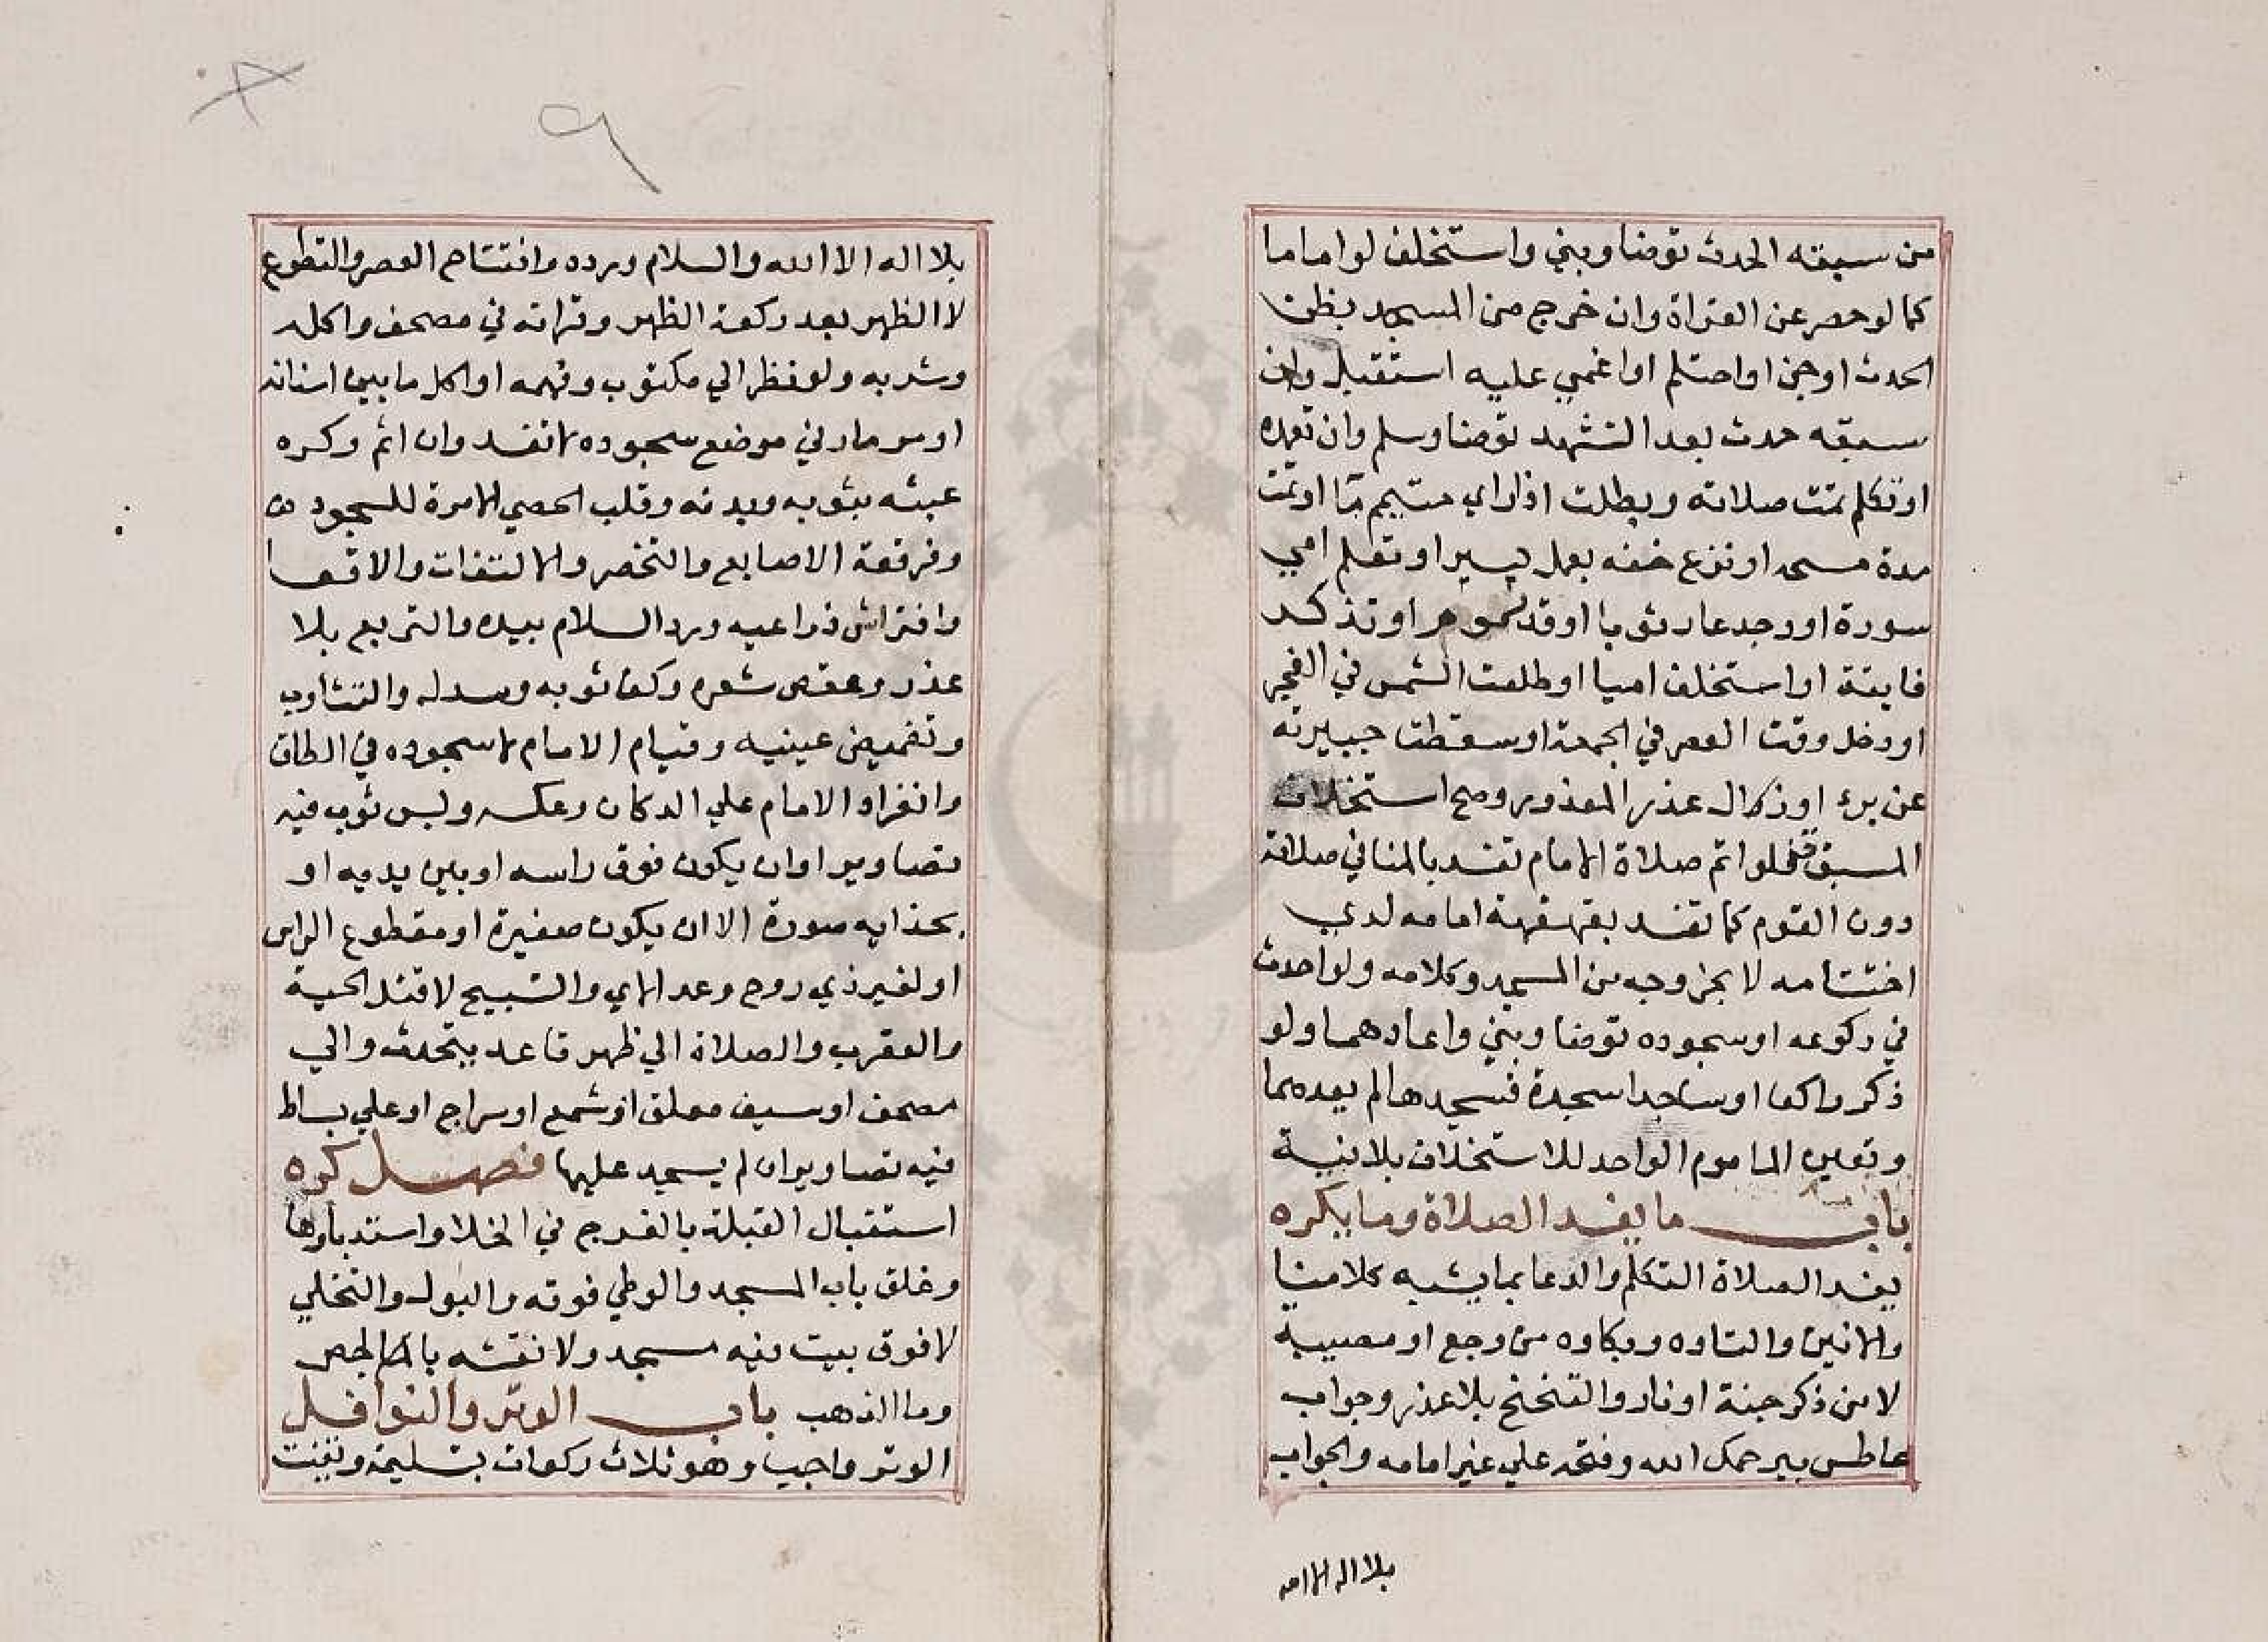 من سبقه الحدث توضا وبني واستخلف لواماما
كما لو حصر عن القراة وان خرج من المسجد بظن
الحدث اوجن اواحتلم او اغمي عليه استقبل وان
سبقه حدث بعد التشهد توضا وسلم وان تعمده
اوتكلم تمت صلاته وبطلت اذا راي متيمم مآ اوتمت
مدة مسحه اونزع خفه بعمل يسير اوتعلم امي
سورة اووجد عار ثوبا اوقدر موم اوتذكر
فايتة اواستخلف اميا اوطلعت الشمس في الفجر
اودخل وقت العصر في الجمعة اوسقطت جبيرته
عن برء اوزال عذر المعذور وصح استخلاف
المسبق فلو اتم صلاة الامام تفسد بالمنافي صلاته
دون القوم كما تفسد بقهقهة امامه لدي
اختتامه لا بخروجه من المسجد وكلامه ولو احدث
في ركوعه اوسجوده توضا وبني واعادهما ولو
ذكر راكعا اوساجدا سجدة فسجدها لم يعدهما
وتعين الماموم الواحد للاستخلاف بلا نية
باب ما يفسد الصلاة وما يكره
يفسد الصلاة التكلم والدعا بما يشبه كلامنا
والانين والتاوه وبكاوه من وجع او مصيبة
لا من ذكر جنة اونار والتنحنح بلا عذر وجواب
عاطس بيرحمك الله وفتحه علي غير امامه والجواب
بلا اله الا الله
٩
بلا اله الا الله والسلام ورده وافتتاح العصر والتطوع
لا الظهر بعد ركعة الظهر وقراته في مصحف واكله
وشربه ولو نظر الي مكتوب وفهمه اواكل ما بين اسنانه
اومر مار في موضع سجوده لا تفسد وان اثم وكره
عبثه بثوبه وبدنه وقلب الحصي الا مرة للسجود
وفرقعة الاصابع والتخصر والالتفات والاقعا
وافتراش ذراعيه ورد السلام بيده والتربع بلا
عذر وعقص شعره وكف ثوبه وسدله والتثاوب
وتغميض عينيه وقيام الامام لا سجوده في الطاق
وانفراد الامام علي الدكان وعكسه ولبس ثوب فيه
تصاوير اوان يكون فوق راسه اوبين يديه او
بحذايه صورة الا ان يكون صغيرة اومقطوع الراس
اولغير ذي روح وعد الاي والتسبيح لا قتل الحية
والعقرب والصلاة الي ظهر قاعد يتحدث والي
مصحف اوسيف معلق اوشمع اوسراج اوعلي بساط
فيه تصاوير ان لم يسجد عليها فصل كره
استقبال القبلة بالفرج في الخلا واستدبارها
وغلق باب المسجد والوطي فوقه والبول والتخلي
لا فوق بيت فيه مسجد ولا نقشه بالجص
وما الذهب باب الوتر والنوافل
الوتر واجب وهو ثلاث ركعات بتسليمة وقنت